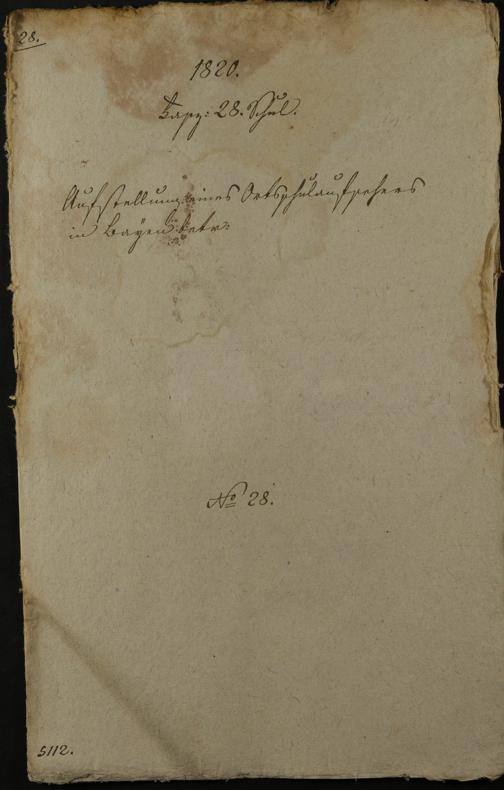 28.
1820.
28. Schul.
Aufstellung eines Ortsschulaufsehers
in betr:
No 28.
5112.